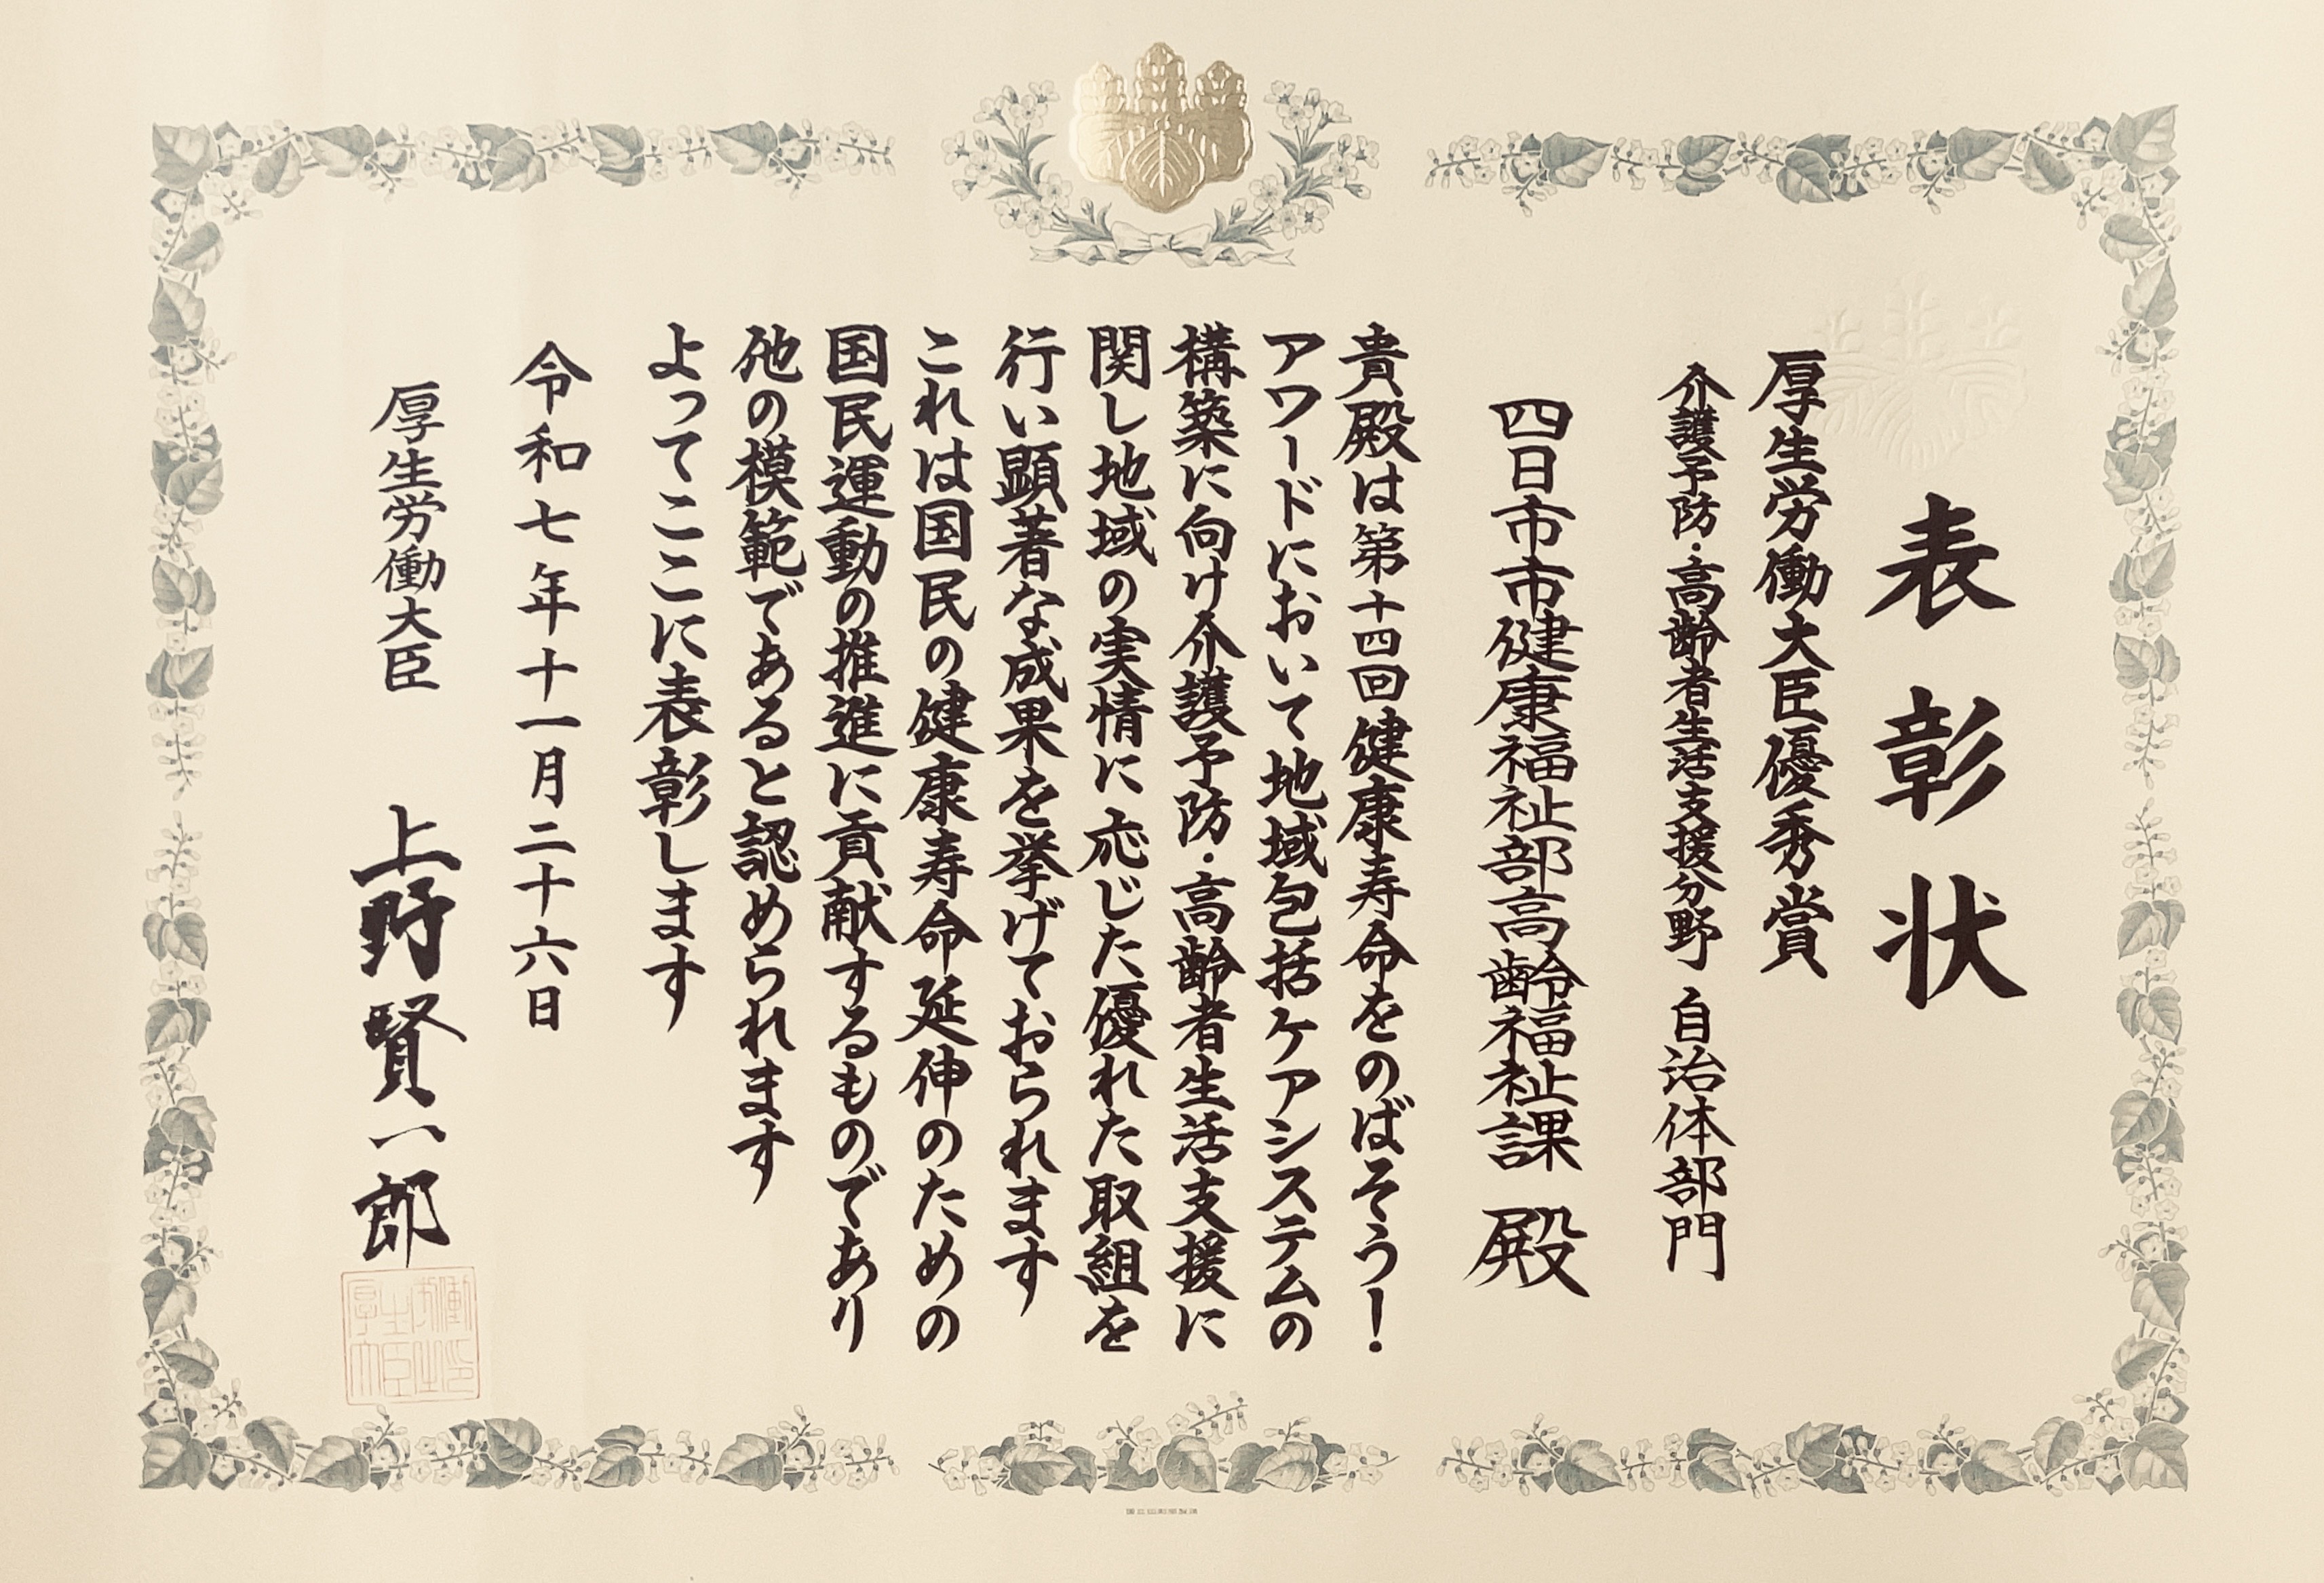 表彰状
厚生労働大臣優秀賞
介護予防・高齢者生活支援分野 自治体部門
四日市市健康福祉部高齢福祉課 殿
貴殿は第十四回健康寿命をのばそう！
アワードにおいて地域包括ケアシステムの
構築に向け介護予防・高齢者生活支援に
関し地域の実情に応じた優れた取組を
行い顕著な成果を挙げておられます
これは国民の健康寿命延伸のための
国民運動の推進に貢献するものであり
他の模範であると認められます
よってここに表彰します
令和七年十一月二十六日
厚生労働大臣 上野賢一郎